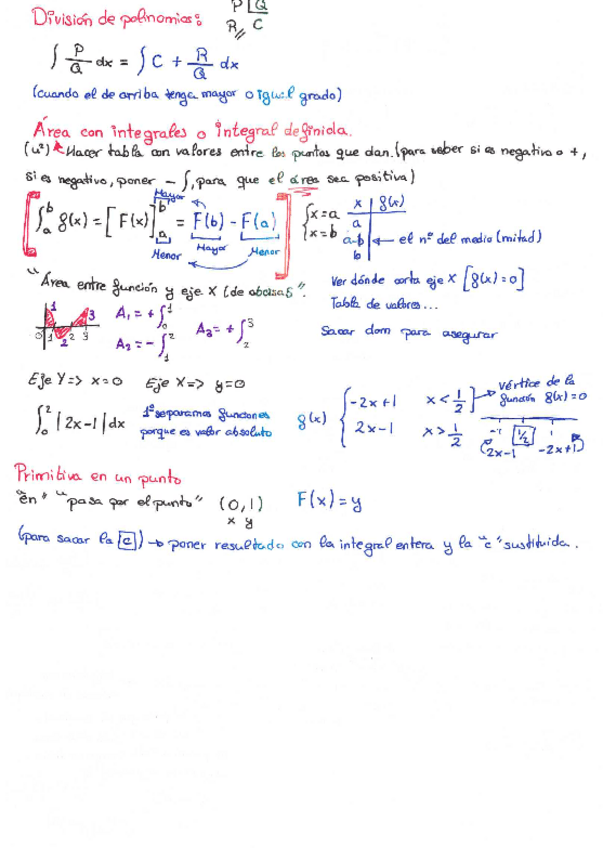 División de polinomios: P | Q
R,, C
∫ P/Q dx = ∫ C + R/Q dx
(cuando el de arriba tenga mayor o igual grado)
Área con integrales o Integral definida.
(u²) Hacer tabla con valores entre los puntos que dan. (para saber si es negativo o +,
si es negativo, poner - ∫, para que el área sea positiva)
∫ₐᵇ g(x) = [F(x)]ₐᵇ = F(b) - F(a)
Mayor
Menor
Mayor Menor
{x=a
{x=b
x | g(x)
a
a-b ← el nº del medio (mitad)
b
"Área entre función y eje X (de abcisas".
Ver dónde corta eje X [g(x)=0]
Tabla de valores...
Sacar dom para asegurar
1 2 3
0 1 2 3
A₁ = + ∫₀¹
A₂ = - ∫₁²
A₃ = + ∫₂³
Eje Y => x=0 Eje X => y=0
∫₀² |2x-1| dx 1º separamos funciones
porque es valor absoluto
g(x) { -2x+1 x < 1/2
2x-1 x > 1/2
→ vértice de la
función g(x)=0
-1 1/2 1
2x-1 -2x+1
Primitiva en un punto
"en" "pasa por el punto" (0,1) F(x)=y
x y
(para sacar la c) → poner resultado con la integral entera y la "c" sustituida.